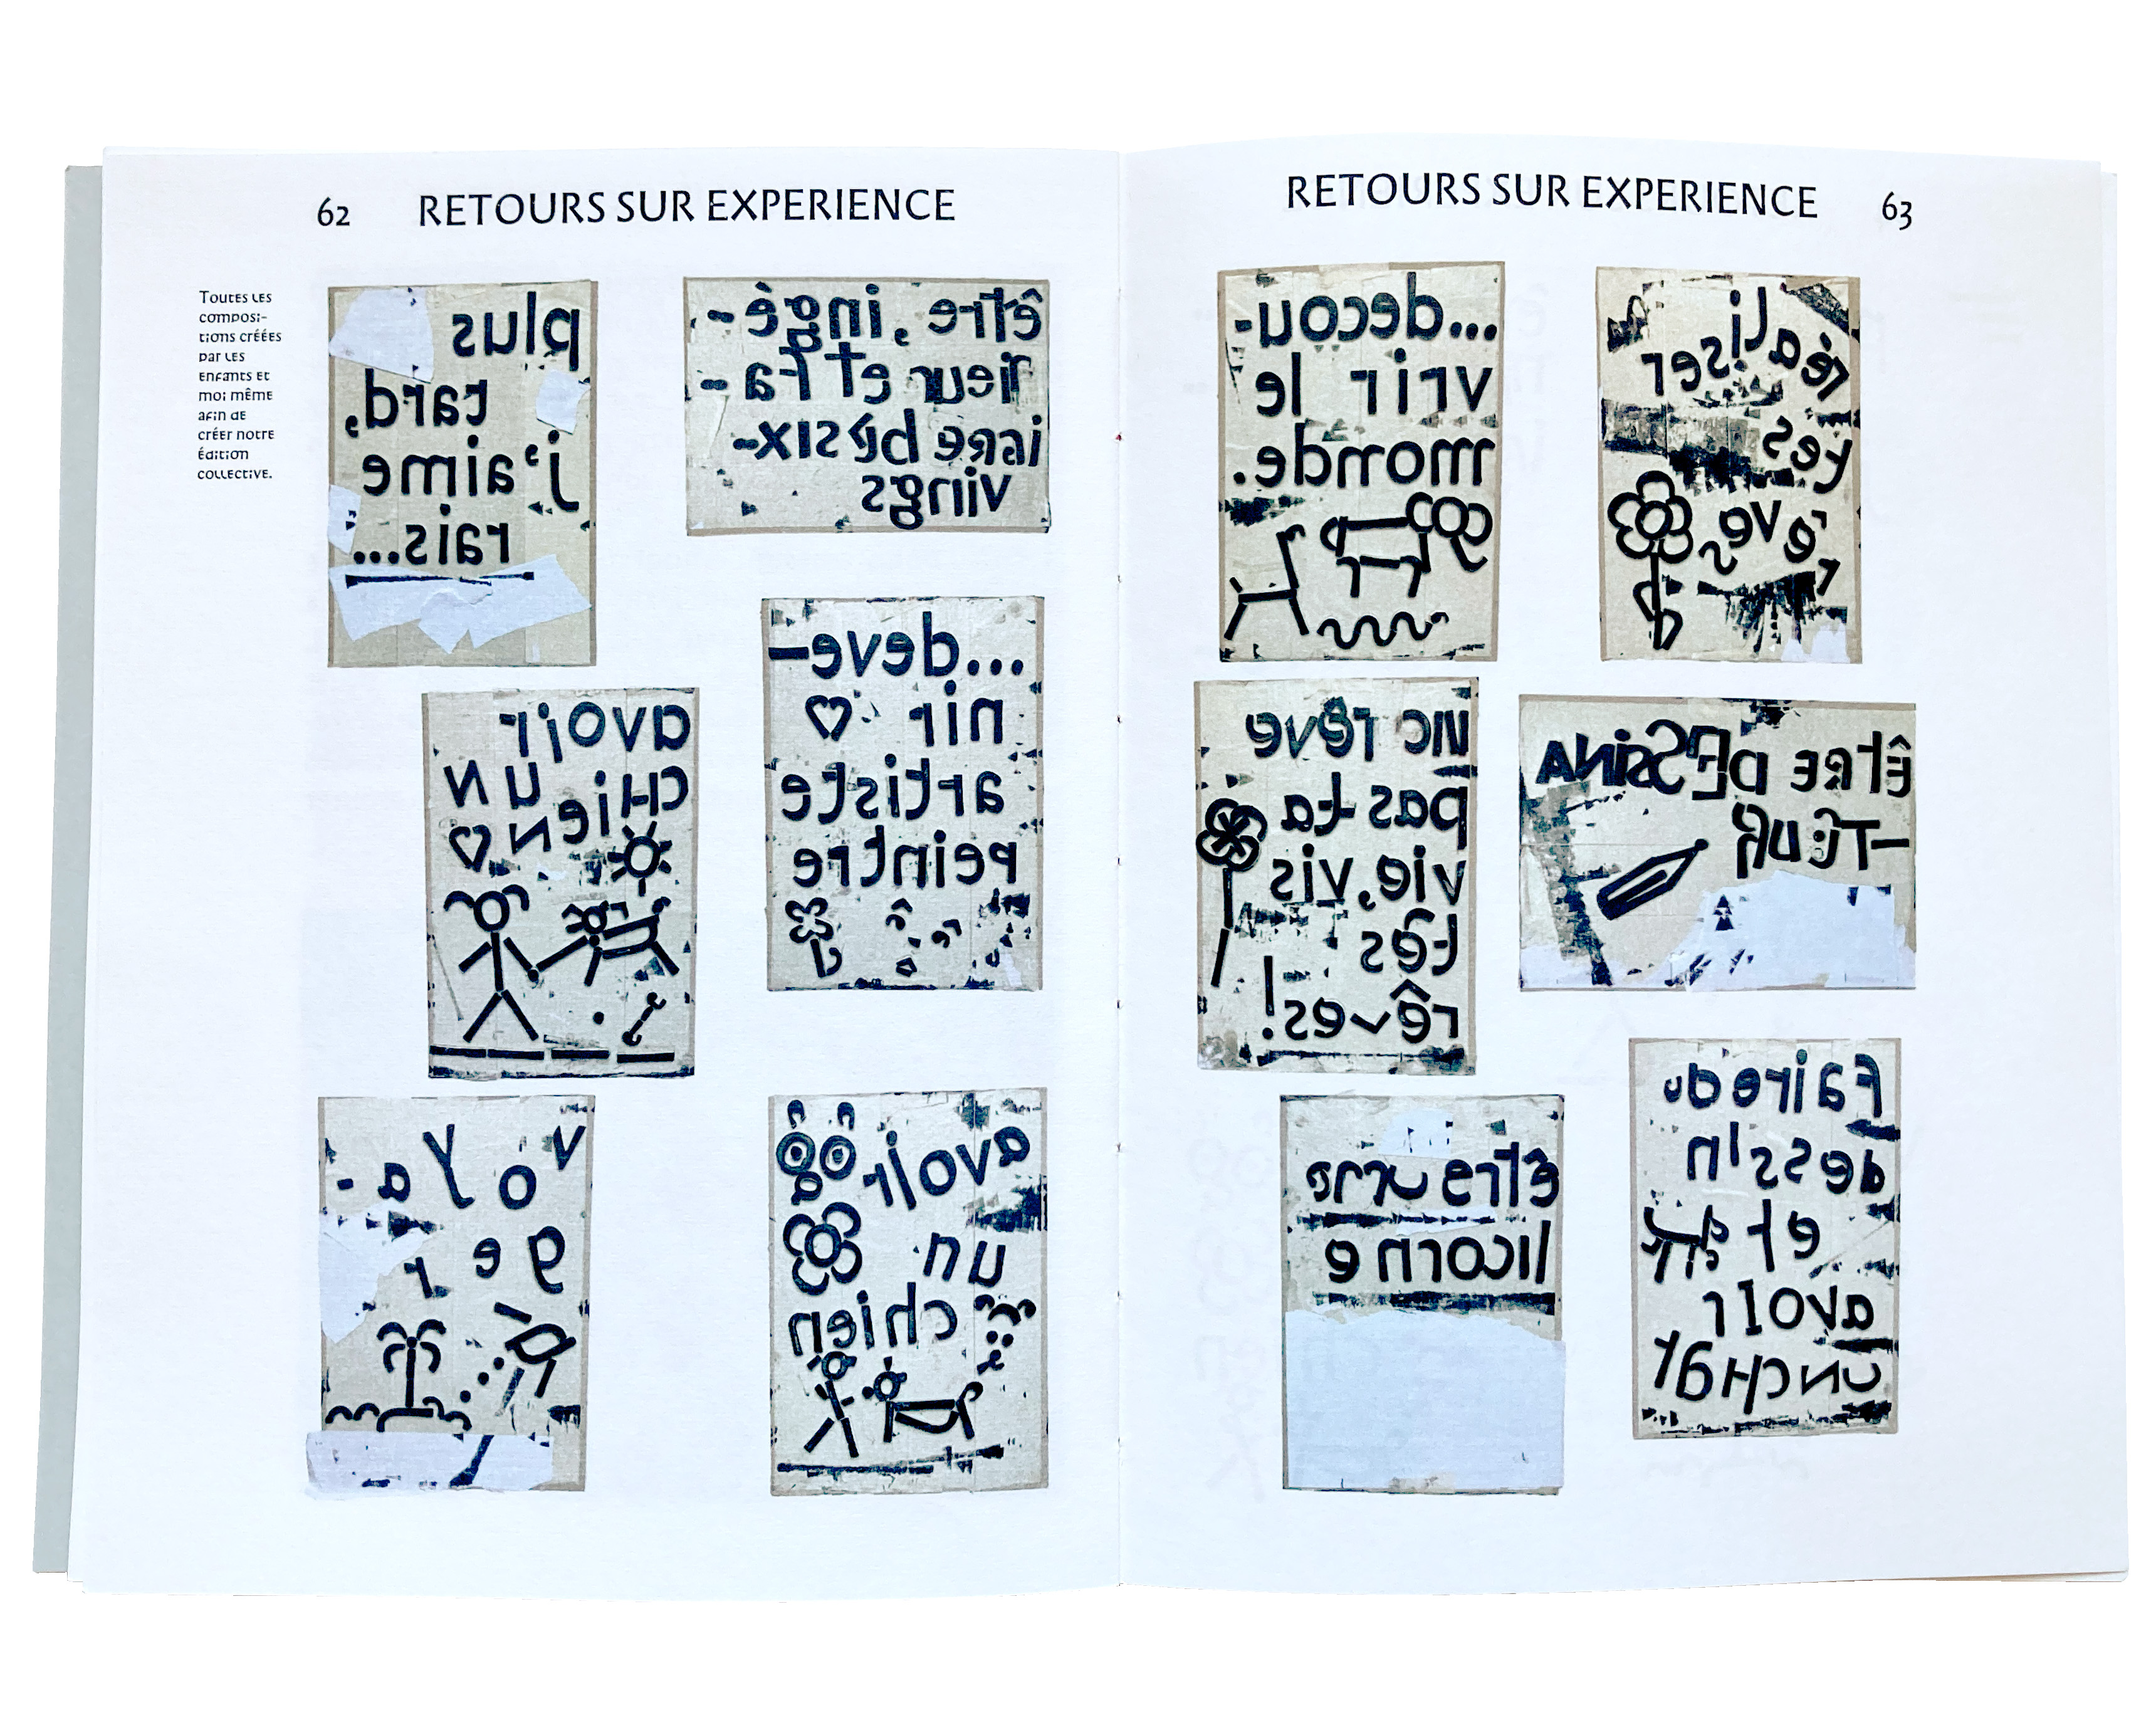 62
RETOURS SUR EXPERIENCE
Toutes les
composi-
tions créées
par les
enfants et
moi même
afin de
créer notre
édition
collective.
plus
tard,
j'aime
rais...
être, ingé-
nieur et fa-
ire des six-
vings
...deve-
nir
artiste
peintre
avoir
UN
CHieN
voya-
ger
avoir
un
chien
RETOURS SUR EXPERIENCE
63
...decou-
vrir le
monde.
réaliser
tes
rêves
rêve
pas ta
vie, vis
tes
rêves!
ÊtRE DESSiNA
-TEUR
être une
licorne
Faire du
dessin
et
avoir
un CHat